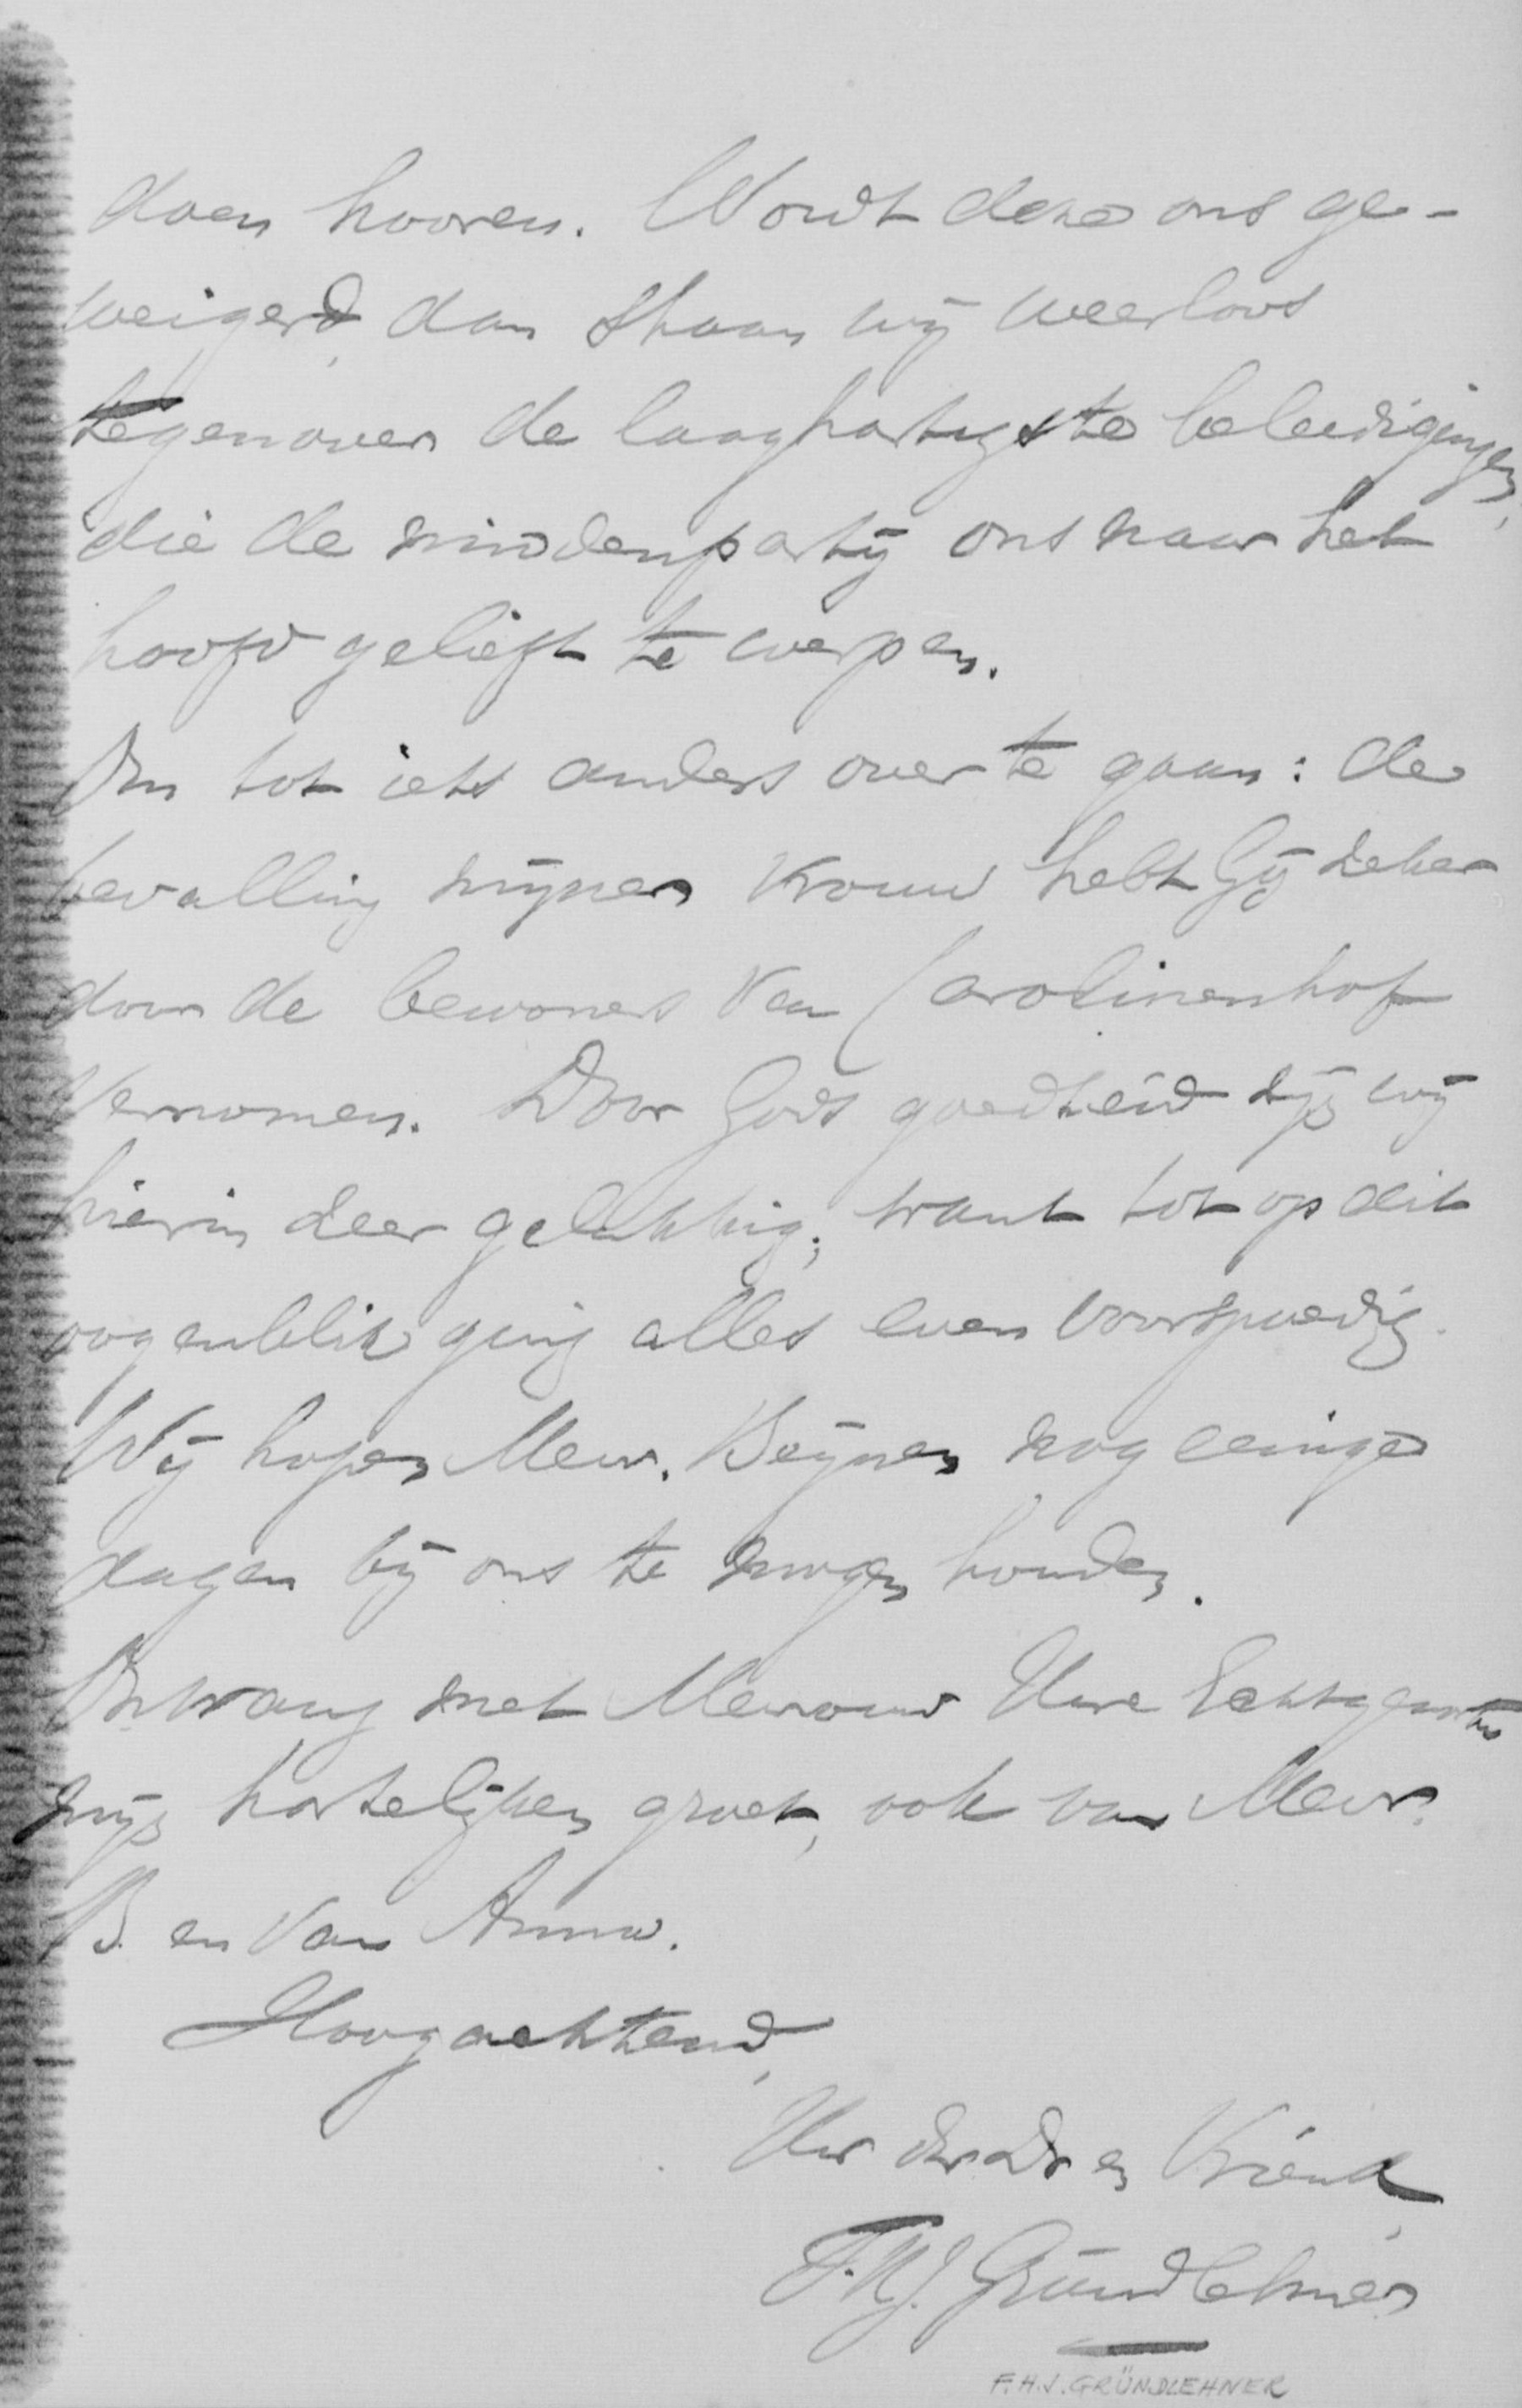 doen hooren. Wordt deze ons ge-
weigerd, dan staan wij weerloos
tegenover de laaghartigste beleedigingen,
die de middenpartij ons naar het
hoofd gelieft te werpen.
Om tot iets anders over te gaan: de
bevalling mijner vrouw hebt Gij zeker
door de bewoners van Carolinenhof
vernomen. Door Gods goedheid zijn wij
hierin zeer gelukkig; want tot op dit
oogenblik ging alles even voorspoedig.
Wij hopen Mevr. Beijnen nog eenige
dagen bij ons te mogen houden.
Ontvang met Mevrouw Uwe Echtgenoote
mijn hartelijken groet, ook van Mevr.
B. en van Anna.
Hoogachtend,
Uw en Vriend,
F.H.J. Gründlehner
F.H.J. GRÜNDLEHNER